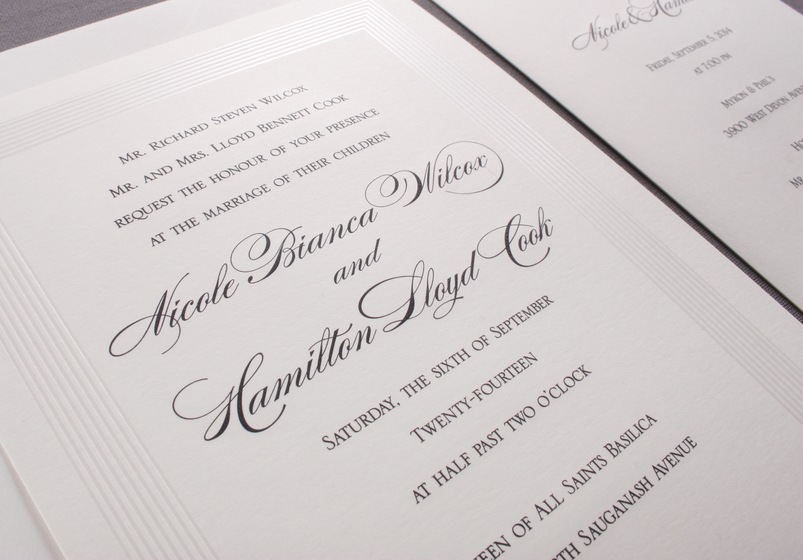 Mr. Richard Steven Wilcox
Mr. and Mrs. Lloyd Bennett Cook
request the honour of your presence
at the marriage of their children
Nicole Bianca Wilcox
and
Hamilton Lloyd Cook
Saturday, the sixth of September
Twenty-fourteen
at half past two o'clock
of All Saints Basilica
Sauganash Avenue
Nicole &
Friday, September 5, 2014
at 7:00 pm
Myron & Phil's
3900 West Devon